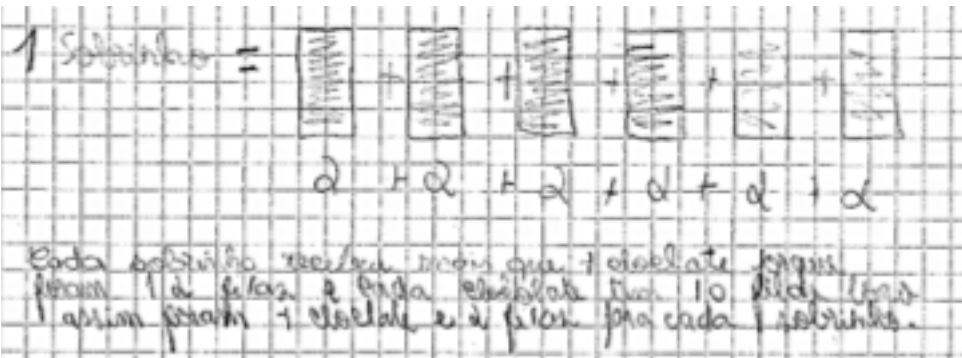 1 Sobrinho =
+ + + + +
2 + 2 + 2 + 2 + 2 + 2
Cada sobrinho recebeu mais que 1 chocolate porque
foram 12 filas e cada chocolate tem 10 filas
assim foram 1 chocolate e 2 filas pra cada 1 sobrinho.